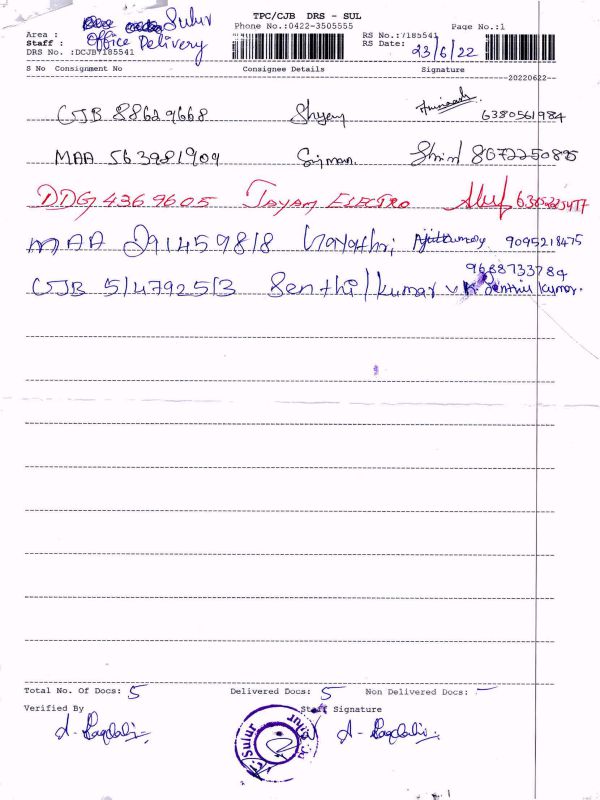 TPC/CJB DRS - SUL
Area : Sulur
Phone No.:0422-3505555
Page No.:1
Staff : Office Delivery
RS No.:7185541
DRS No. :DCJB7185541
RS Date: 23/6/22
S No Consignment No Consignee Details Signature
20220622
CJB 88629668 Shyam 6380561984
MAA 563981909 8072250895
DDG 4369605 Jayam Electro
MAA 291459818 Gayathri Ajithkumar 9095218475
9688733784
CJB 514792513 Senthilkumar V.K. Senthil kumar.
Total No. Of Docs: 5 Delivered Docs: 5 Non Delivered Docs: -
Verified By Staff Signature
Sulur